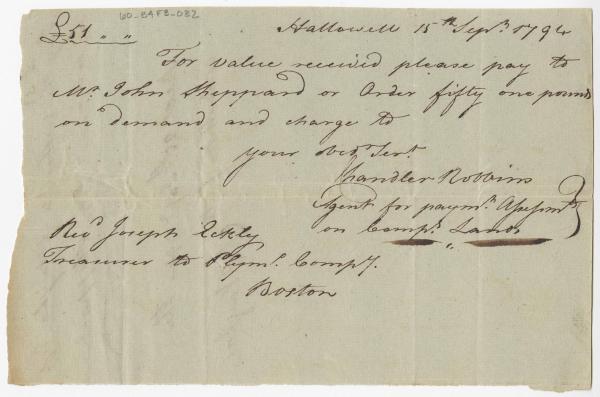 60-BAFB-032
£51 " "
Hallowell 15th Sepr. 1794
For value received please pay to
Mr. John Sheppard or Order fifty one pounds
on demand and charge to
your obdt. Sert.
Chandler Robbins
Agent for paymt. Assessmts
on Compys. Lands
Revd. Joseph Eckly
Treasurer to Plymo. Compy.
Boston